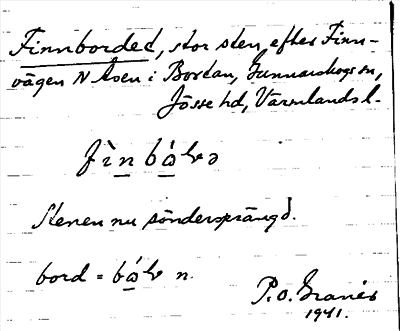 Finnbordet, stor sten, efter Finn-
vägen N Åsen i Bortan, Gunnarskogs sn,
Jösse hd, Värmlands l.
fìnbώ̀ɽə
Stenen nu söndersprängd.
bord = bώɽ n.
P.O. Granér
1941.